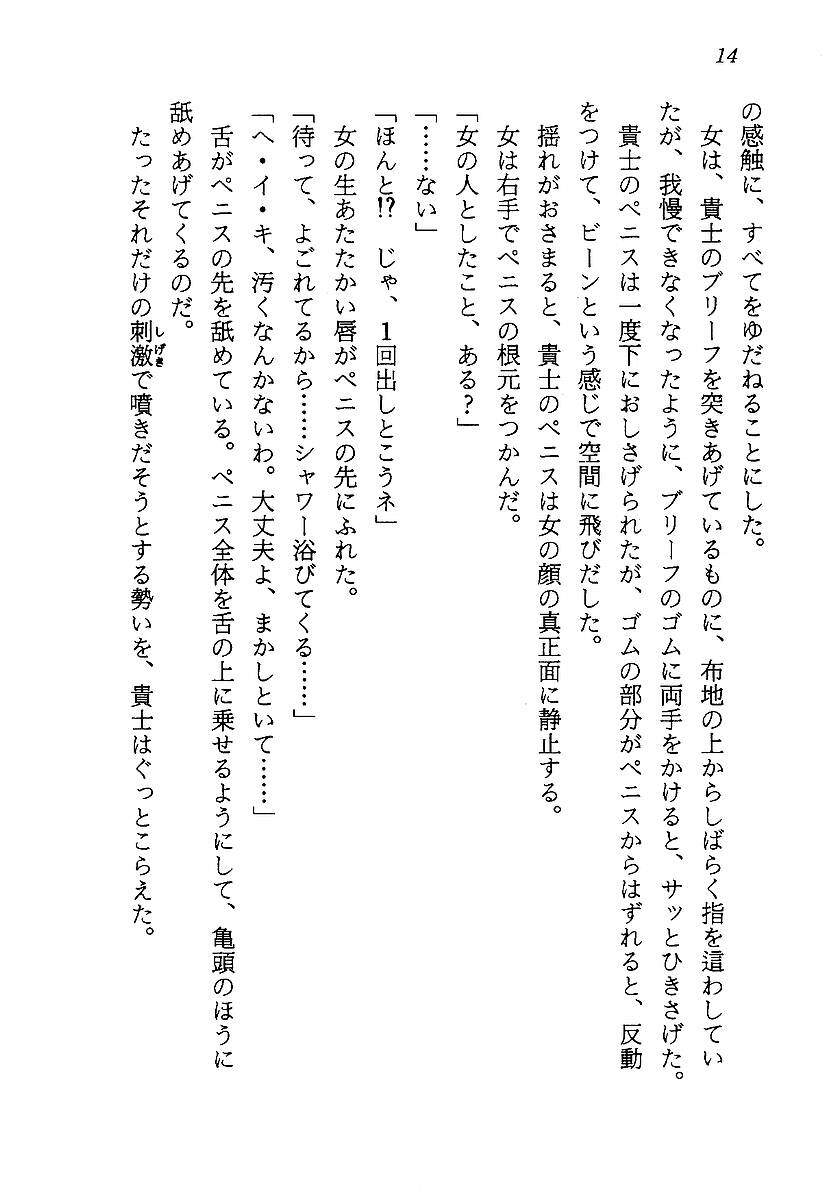 14
の感触に、すべてをゆだねることにした。
女は、貴士のブリーフを突きあげているものに、布地の上からしばらく指を這わしてい
たが、我慢できなくなったように、ブリーフのゴムに両手をかけると、サッとひきさげた。
貴士のペニスは一度下におしさげられたが、ゴムの部分がペニスからはずれると、反動
をつけて、ビーンという感じで空間に飛びだした。
揺れがおさまると、貴士のペニスは女の顔の真正面に静止する。
女は右手でペニスの根元をつかんだ。
「女の人としたこと、ある?」
「……ない」
「ほんと!? じゃ、1回出しとこうネ」
女の生あたたかい唇がペニスの先にふれた。
「待って、よごれてるから……シャワー浴びてくる……」
「ヘ・イ・キ、汚くなんかないわ。大丈夫よ、まかしといて……」
舌がペニスの先を舐めている。ペニス全体を舌の上に乗せるようにして、亀頭のほうに
舐めあげてくるのだ。
たったそれだけの刺激しげきで噴きだそうとする勢いを、貴士はぐっとこらえた。